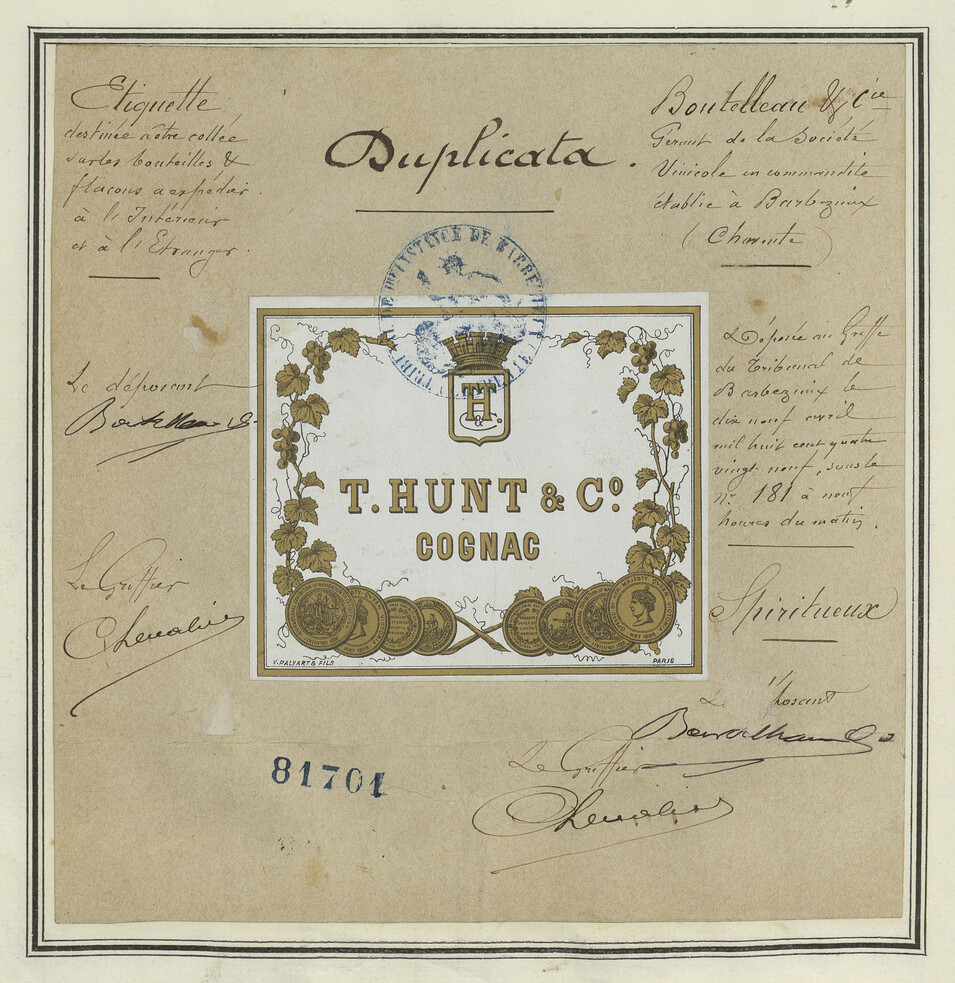 Etiquette
destinée à être collée
sur les bouteilles &
flacons à expédier
à l'Intérieur
et à l'Etranger.
Duplicata.
Boutelleau & Cie
Gérant de la Société
Vinicole en commandite
établie à Barbezieux
(Charente)
TRIBAL DE 1RE INSTANCE DE BARBEZIEUX
T.H
& C.
T. HUNT & Co
COGNAC
V. PALYART & FILS
PARIS
Le déposant
Boutelleau &
Le Greffier
Chevalier
Déposée au Greffe
du Tribunal de
Barbezieux le
dix neuf avril
mil huit cent quatre
vingt neuf, sous le
n° 181 à neuf
heures du matin.
Spiritueux
Le déposant
Boutelleau &
Le Greffier
Chevalier
81701